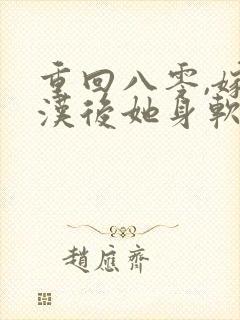 重回八零,嫁
漢後她身軟
趙應齊